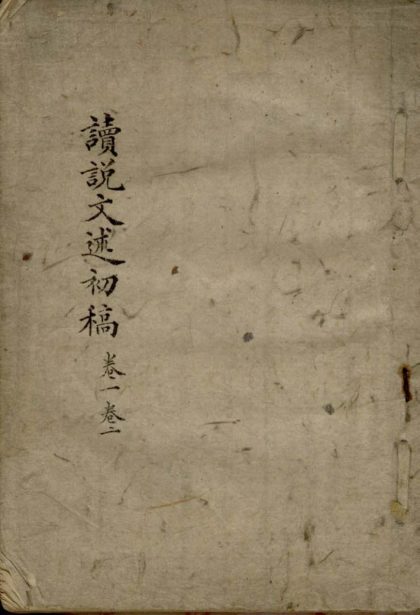 讀説文述初稿 卷一 卷二